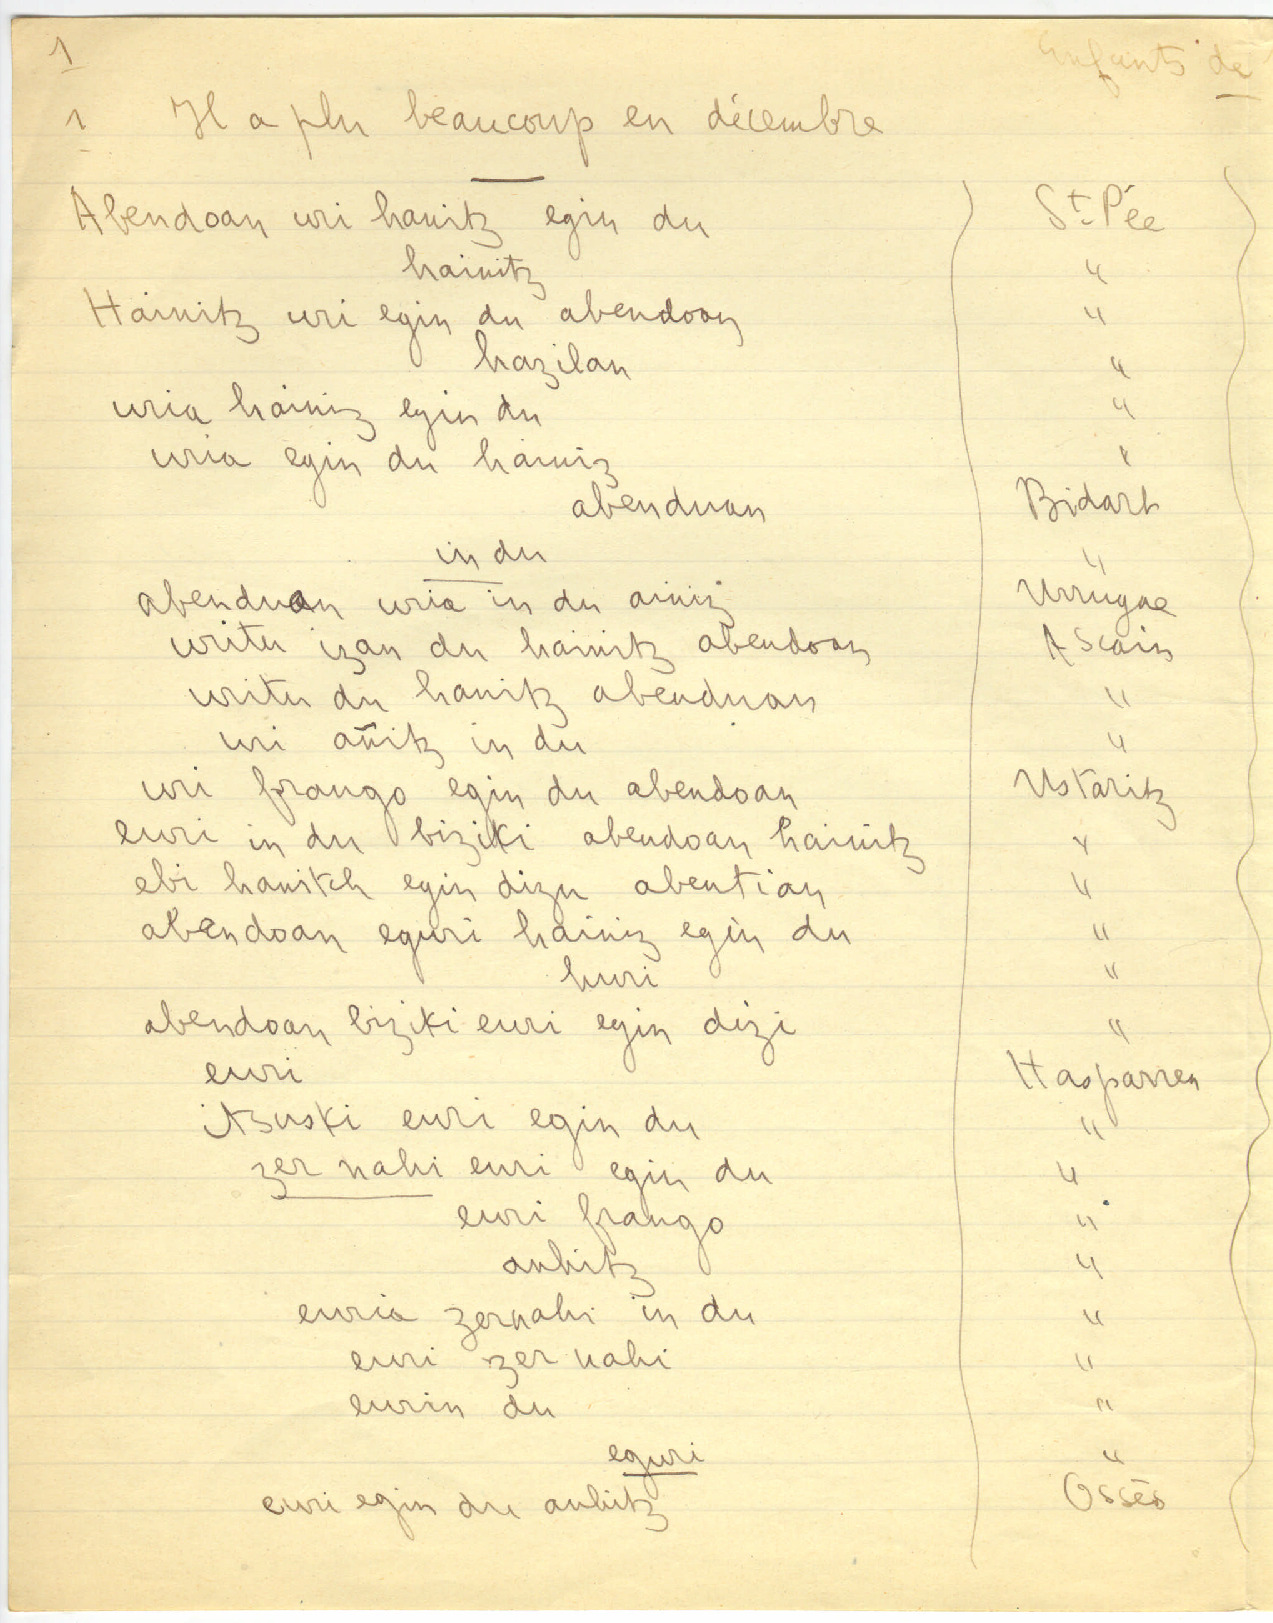 1 Enfants de
1 Il a plu beaucoup en décembre
Abendoan uri hanitz egin du St-Pée
hainitz "
Hainitz uri egin du abendoan "
hazilan "
uria hainiz egin du "
uria egin du hainiz "
abenduan Bidart
in du "
abenduan uria in du ainiz Urrugne
uritu izan du hainitz abendoan Ascain
uritu du hanitz abenduan "
uri añitz in du "
uri frango egin du abendoan Ustaritz
euri in du biziki abendoan hainitz "
ebi hanitch egin dizu abentian "
abendoan eguri hainiz egin du "
huri "
abendoan biziki euri egin dizi "
euri Hasparren
itzuski euri egin du "
zer nahi euri egin du "
euri frango "
anhitz "
euria zernahi in du "
euri zer nahi "
eurin du "
eguri "
euri egin du anhitz Ossès